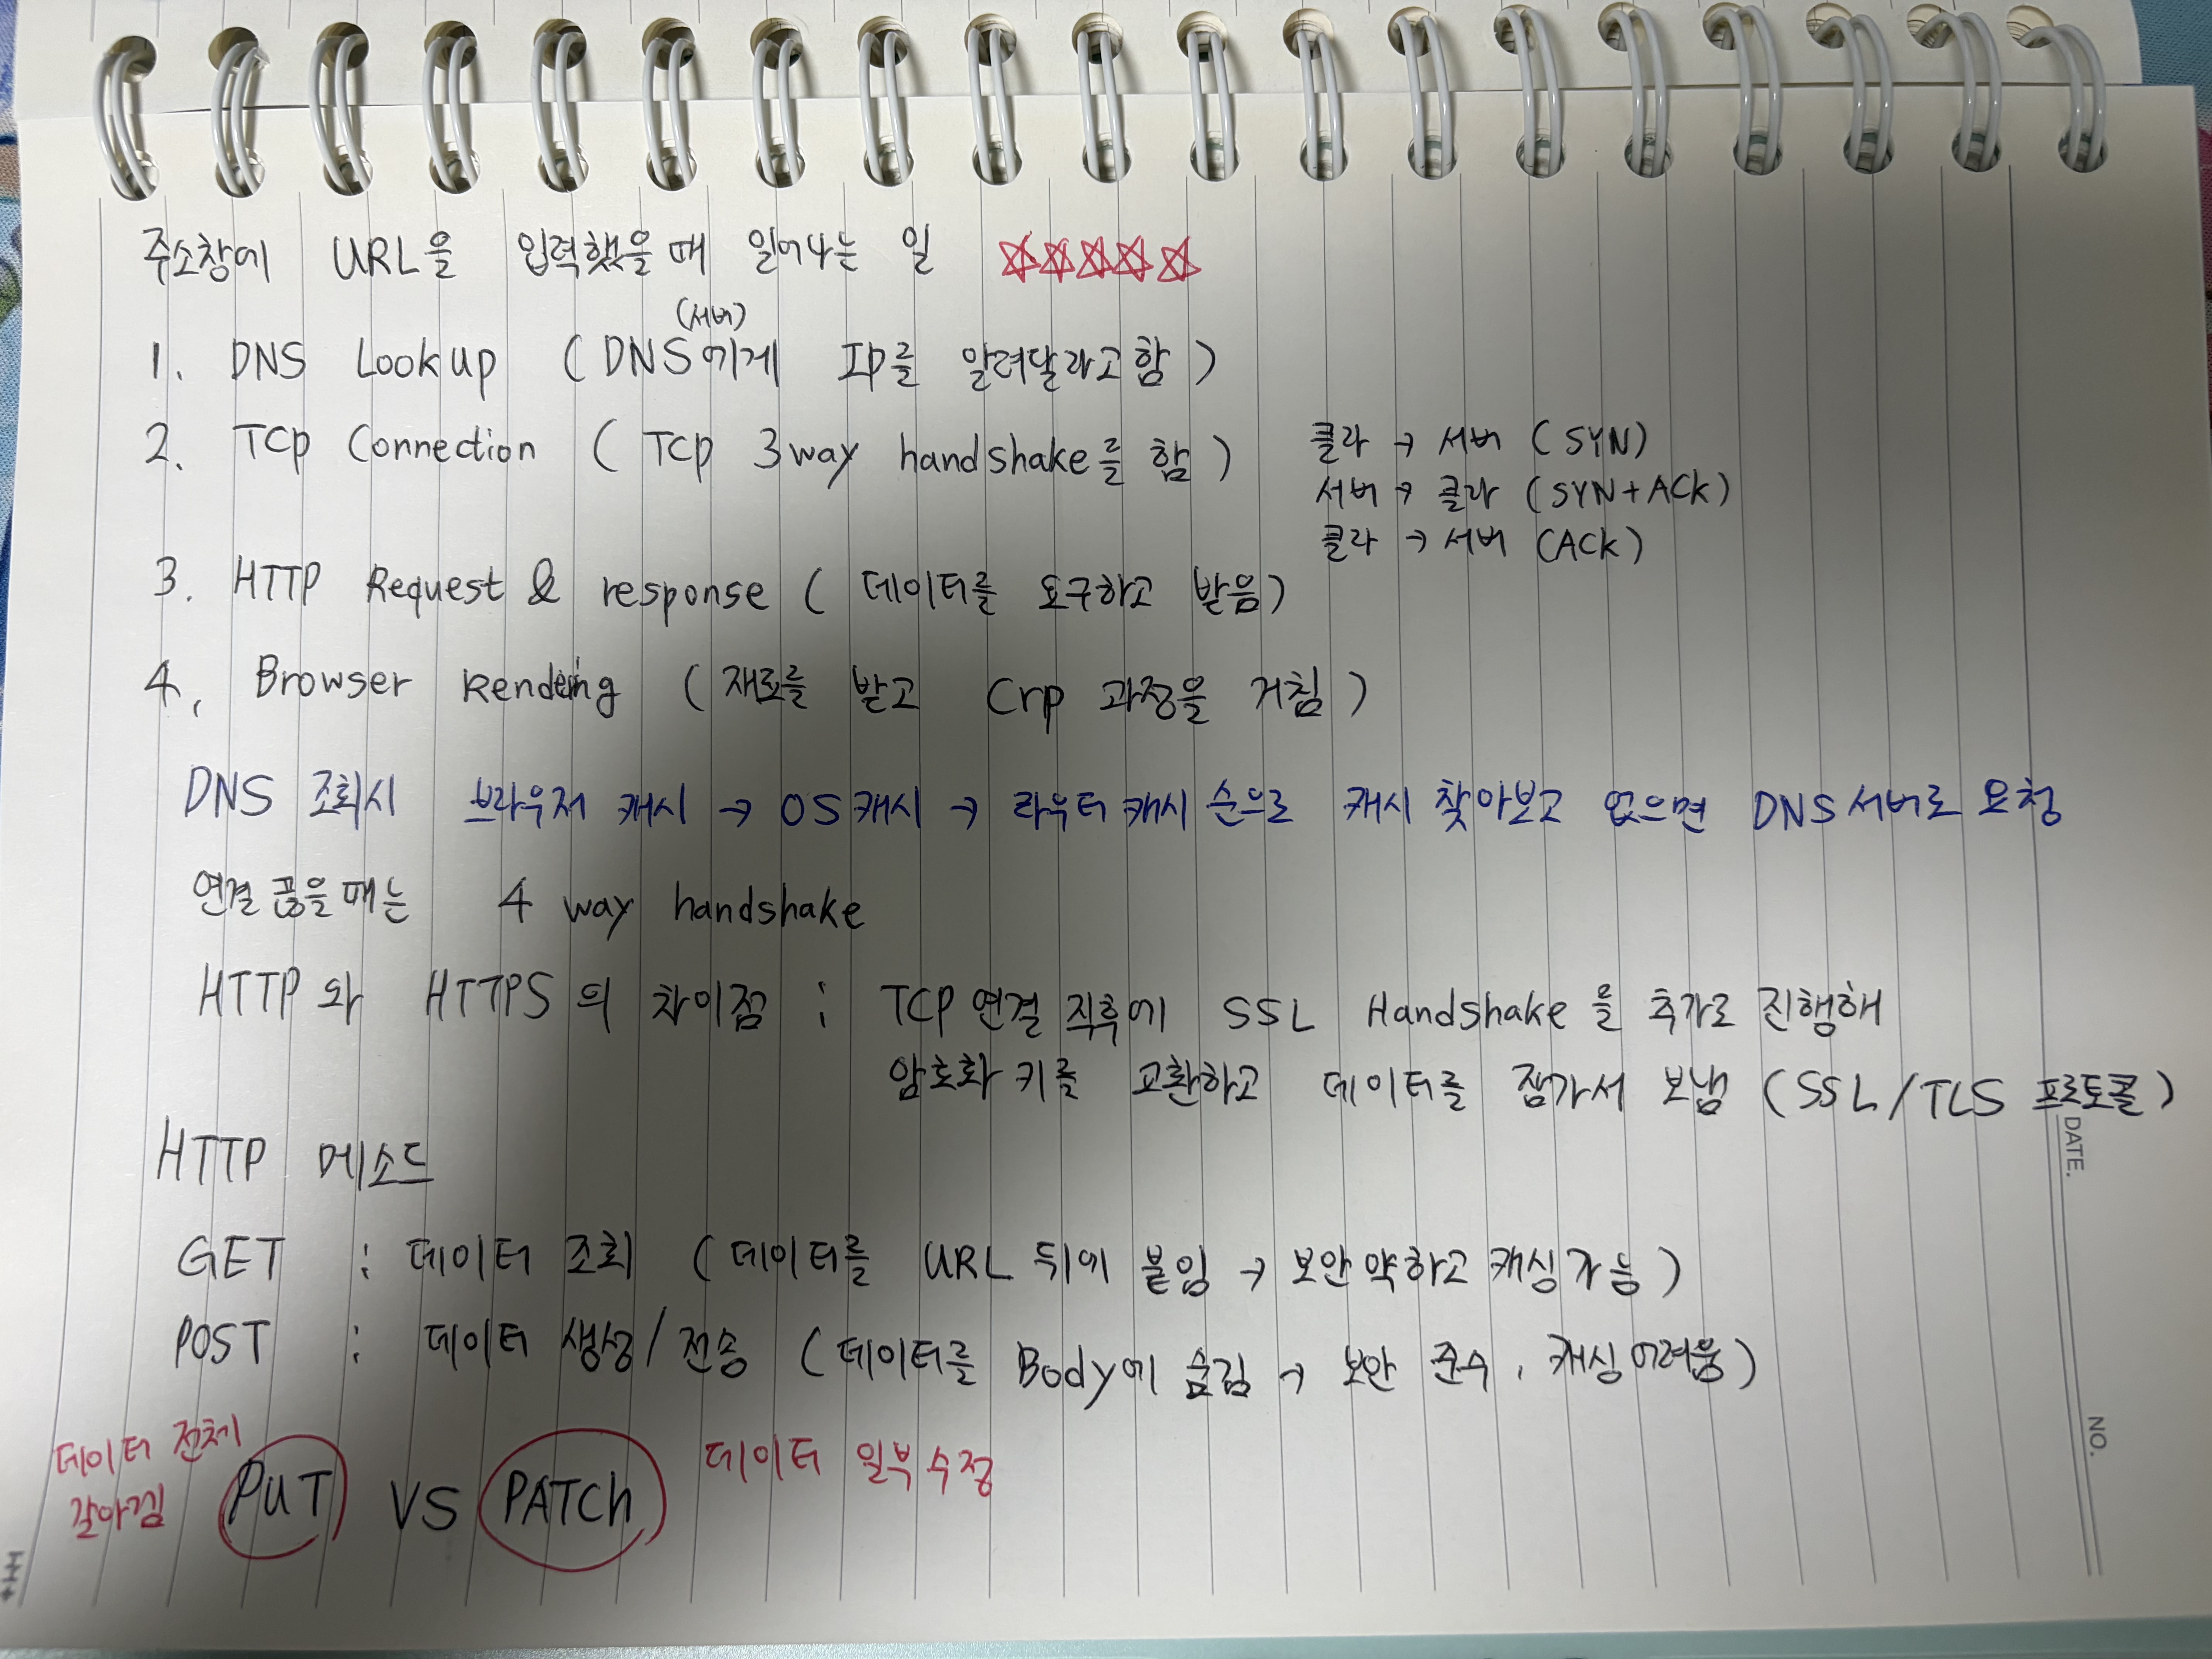 주소창에 URL을 입력했을때 일어나는 일 ☆☆☆☆☆
(서버)
1. DNS Lookup (DNS에게 IP를 알려달라고함)
2. TCP Connection (TCP 3way handshake를 함)
클라 → 서버 (SYN)
서버 → 클라 (SYN+ACK)
클라 → 서버 (ACK)
3. HTTP Request & response (데이터를 요구하고 받음)
4. Browser Rendering (재료를 받고 Crp 과정을 거침)
DNS 조회시 브라우저 캐시 → OS캐시 → 라우터캐시 순으로 캐시 찾아보고 없으면 DNS서버로 요청
연결 끊을때는 4 way handshake
HTTP와 HTTPS의 차이점 : TCP연결 직후에 SSL Handshake를 추가로 진행해
암호화 키를 교환하고 데이터를 잠가서 보냄 (SSL/TLS 프로토콜)
HTTP 메소드
GET : 데이터 조회 (데이터를 URL 뒤에 붙임 → 보안 약하고 캐싱가능)
POST : 데이터 생성/전송 (데이터를 Body에 숨김 → 보안 준수, 캐싱어려움)
데이터 전체
갈아낌
PUT VS PATCh
데이터 일부수정
DATE.
NO.